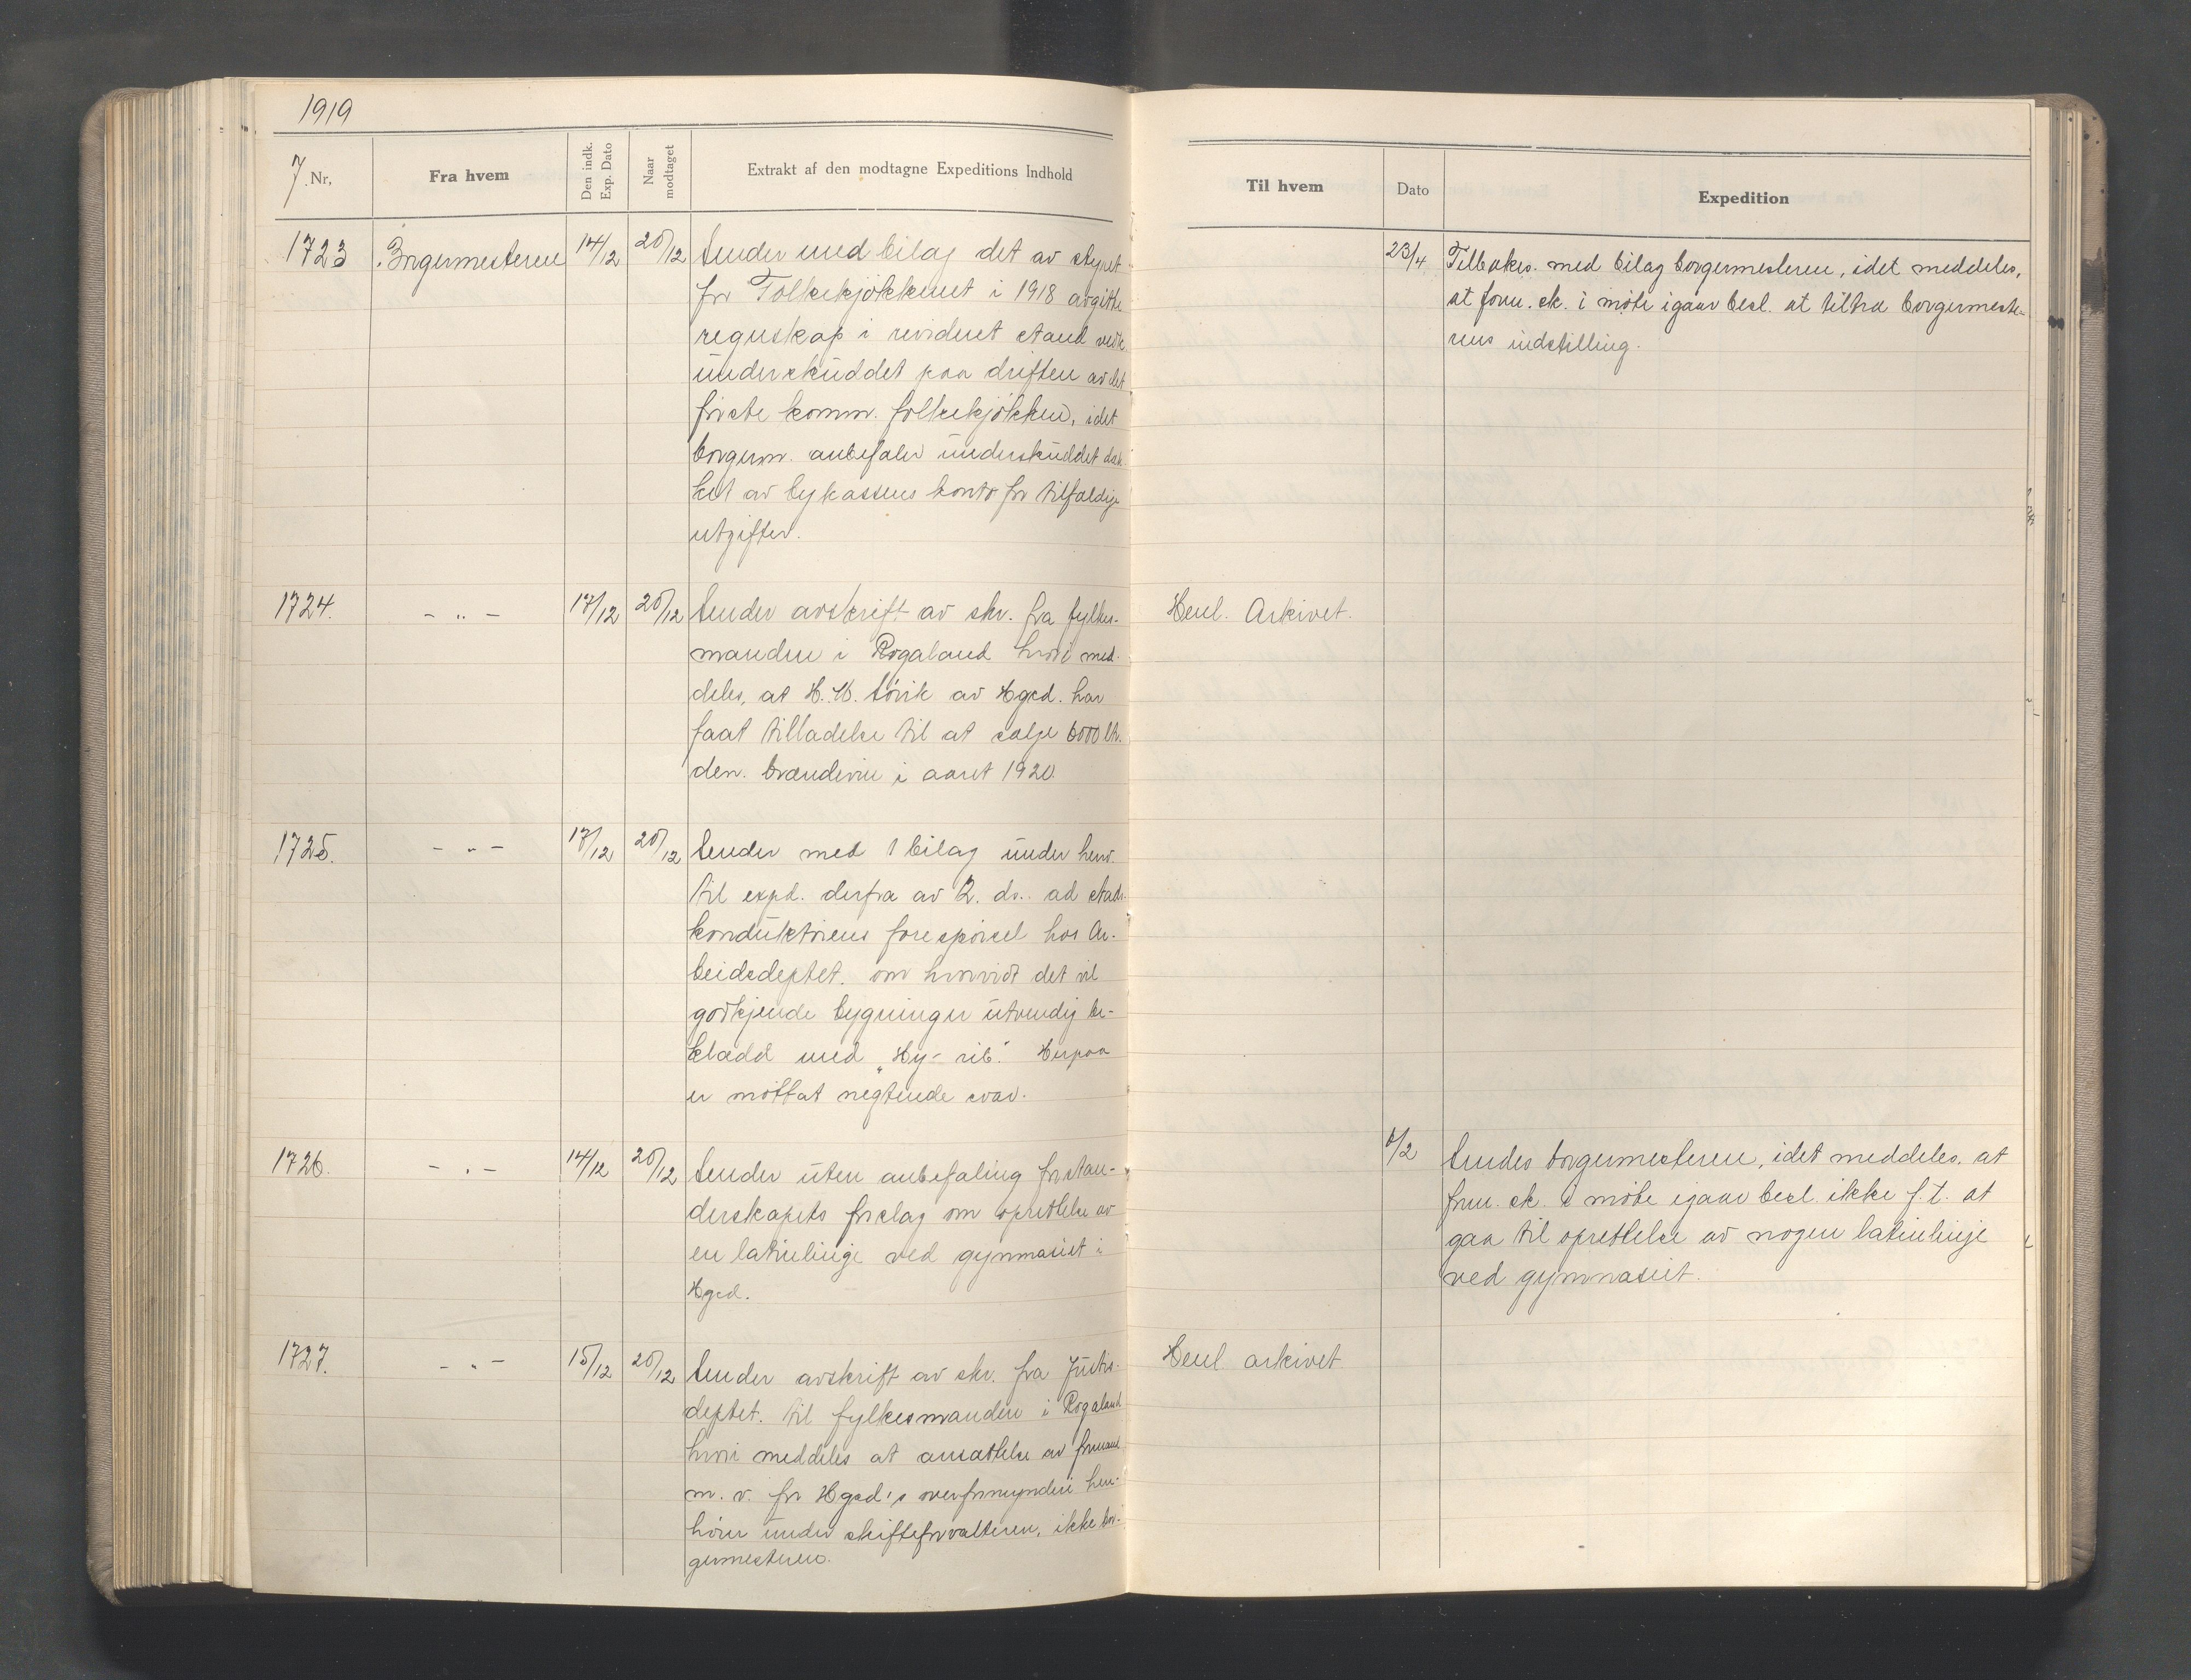 1919
7.
Nr,
Fra hvem
Den indk. Exp. Dato
Naar modtaget
Extrakt af den modtagne Expeditions Indhold
Til hvem
Dato
Expedition
1723 Borgermesteren 17/12 20/12 Sender med bilag det av styret
for Folkekjøkkenet i 1918 avgitte
regnskap i revideret stand vedk.
underskuddet paa driften av det
første komm. folkekjøkken, idet
borgerm. anbefaler underskuddet dæk-
ket av bykassens konto for tilfældige
utgifter.
23/4 Tilbakes. med bilag borgermesteren, idet meddeles,
at form. sk. i møte igaar besl. at tiltræ borgermeste-
rens indstilling.
1724. - " - 17/12 20/12 Sender avskrift av skr. fra fylkes-
manden i Rogaland hvori med-
deles, at H. M. Sørik av Hgsd. har
faat tilladelse til at sælge 6000 ltr.
den. brændevin i aaret 1920.
Henl. Arkivet.
1725. - " - 17/12 20/12 Sender med 1 bilag under henv.
til expd. derfra av 2. ds. ad stads-
konduktørens forespørsel hos Ar-
beidsdeptet. om hvorvidt det vil
godkjende bygninger utvendig be-
klædd med „Hy-rib." Herpaa
er mottat negtende svar.
1726. - " - 17/12 20/12 Sender uten anbefaling forstan-
derskapets forslag om oprettelse av
en latinlinje ved gymnasiet i
Hgsd.
6/2 Sendes borgermesteren, idet meddeles, at
form. sk. i møte igaar besl. ikke f. t. at
gaa til oprettelse av nogen latinlinje
ved gymnasiet.
1727. - " - 15/12 20/12 Sender avskrift av skr. fra Justis-
deptet. til fylkesmanden i Rogaland
hvori meddeles at ansættelse av formænd
m. v. for Hgsd's overformynderi hen-
hører under skifteforvalteren, ikke bor-
germesteren.
Henl. arkivet